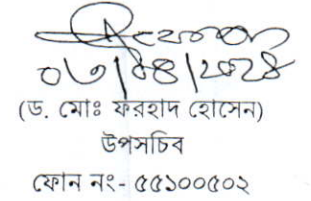 ০৬/০৪/২০২৪
(ড. মোঃ ফরহাদ হোসেন)
উপসচিব
ফোন নং- ৫৫১০০৫০২